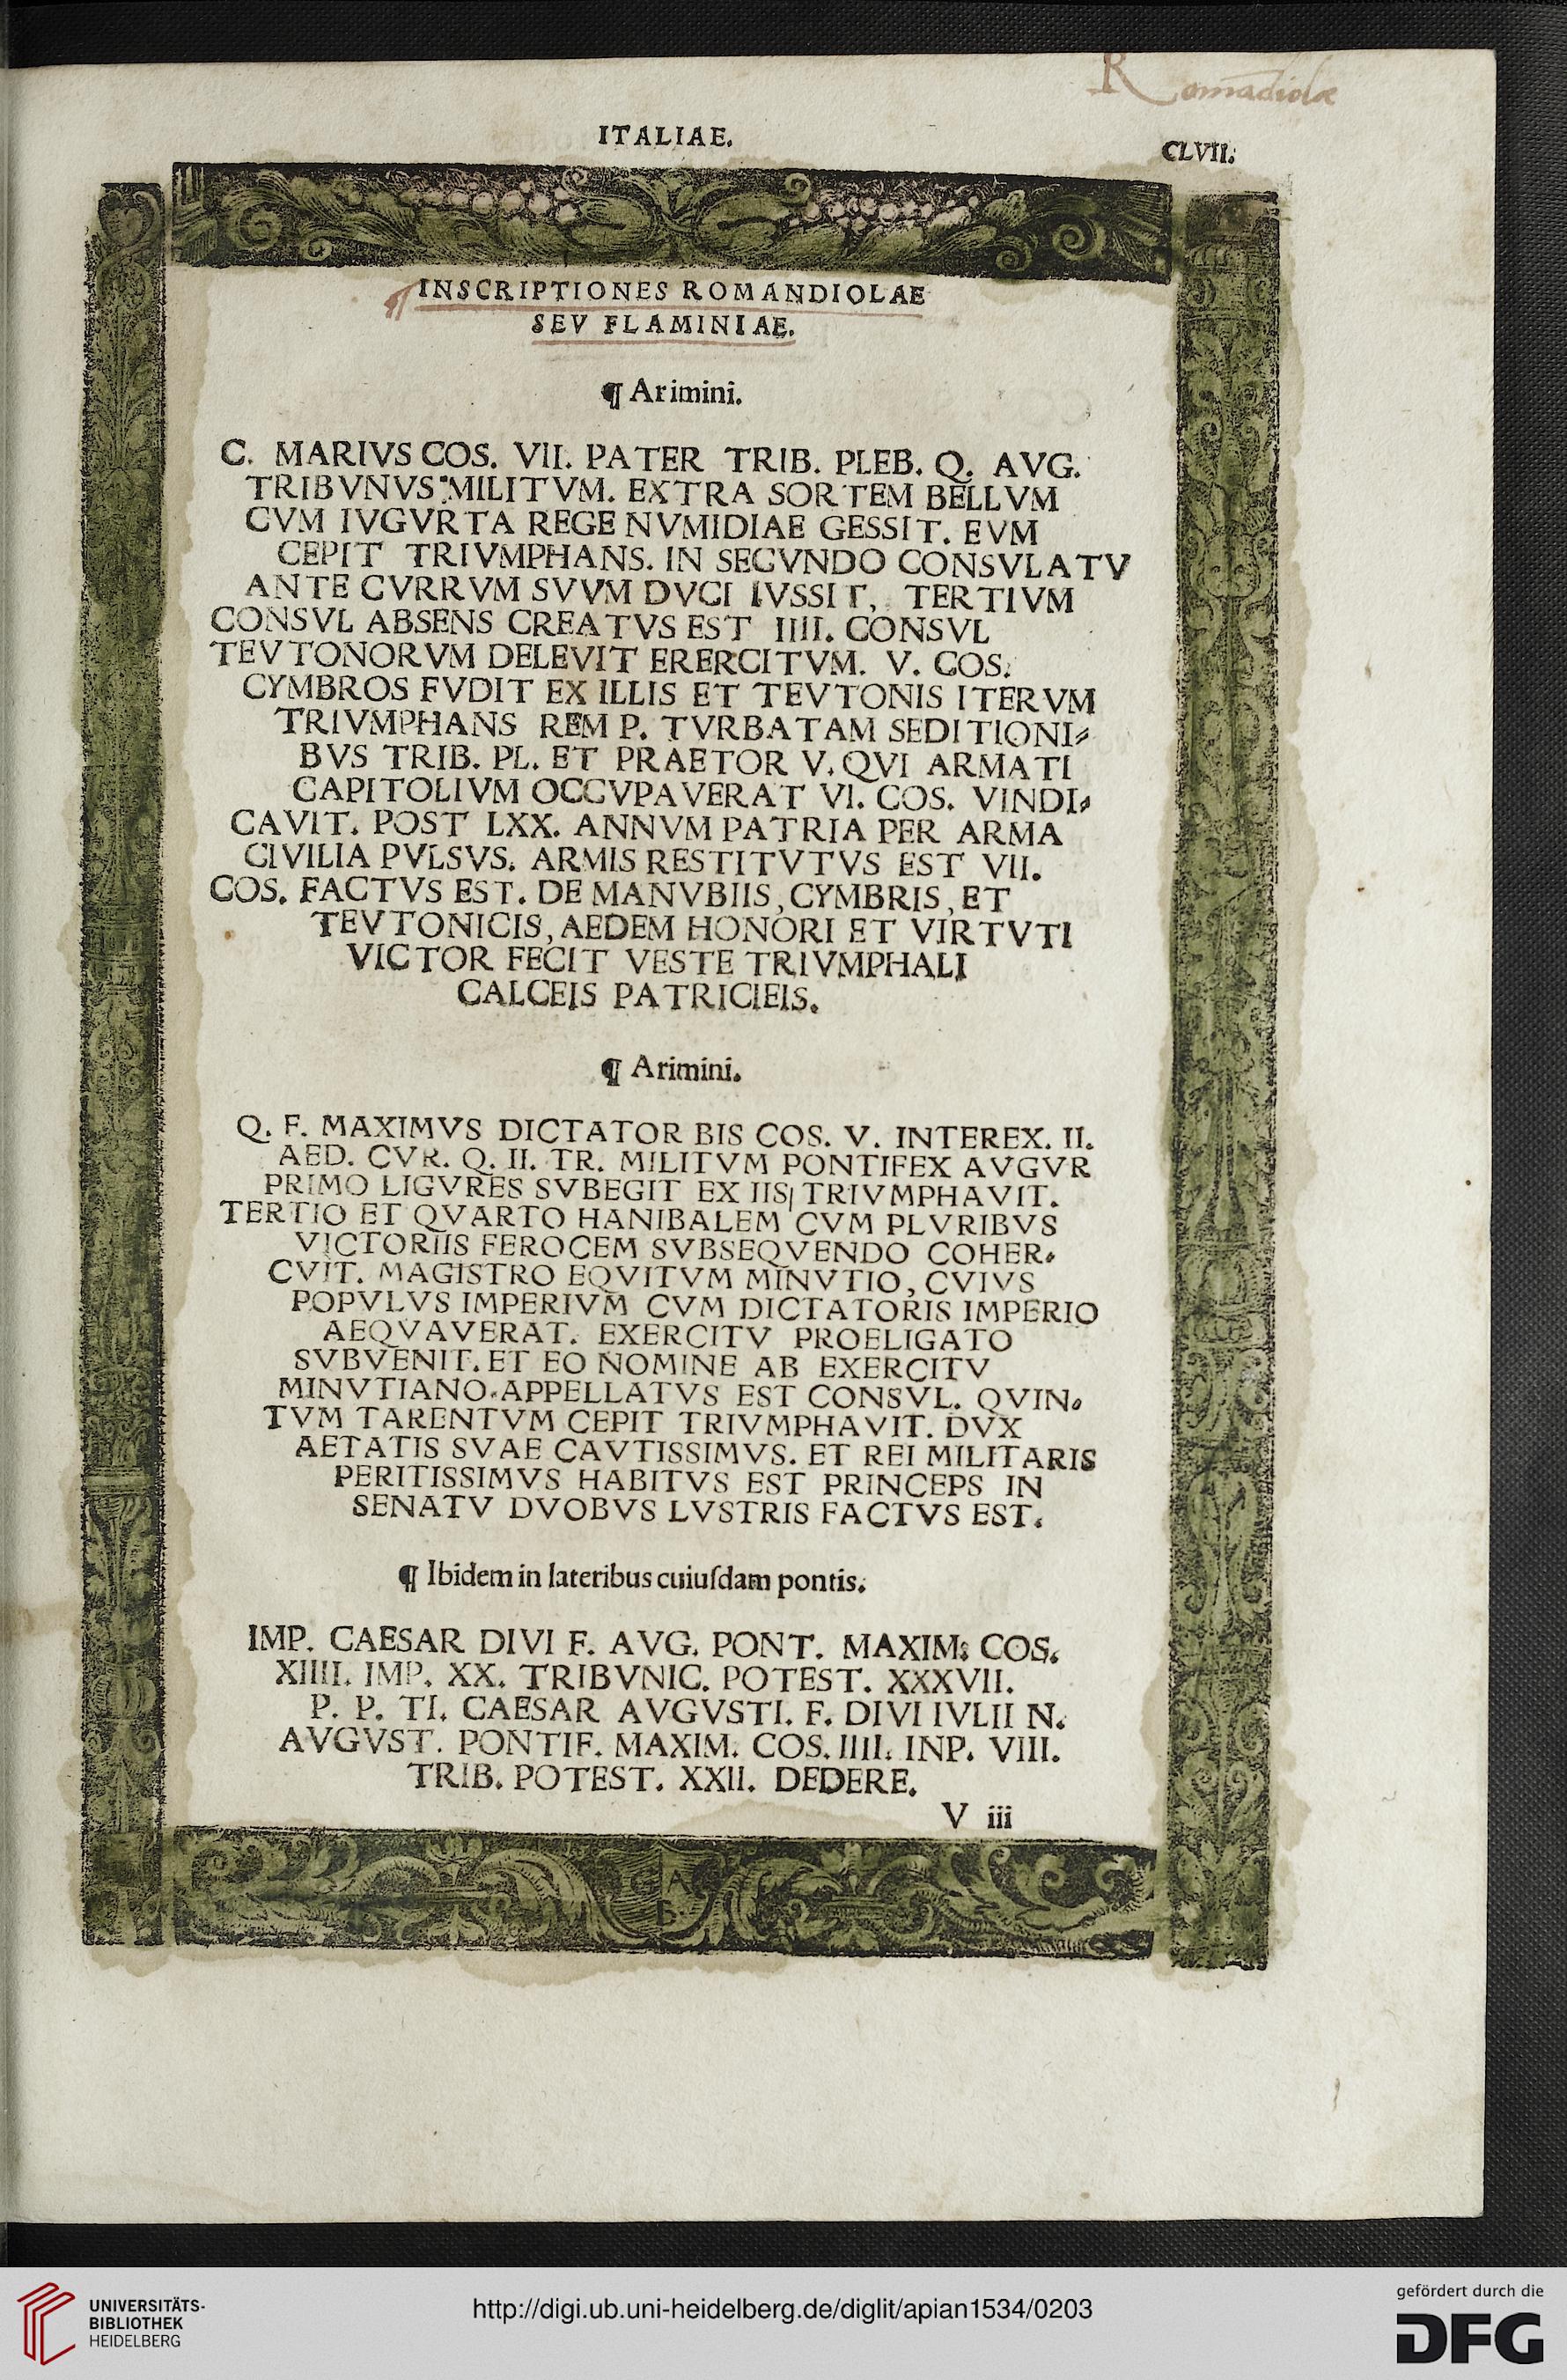 Romadiolæ
ITALIAE.
CLVII.
¶ INSCRIPTIONES ROMANDIOLAE
SEV FLAMINIAE.
¶ Arimini.
C. MARIVS COS. VII. PATER TRIB. PLEB. Q. AVG.
TRIBVNVS MILITVM. EXTRA SORTEM BELLVM
CVM IVGVRTA REGE NVMIDIAE GESSIT. EVM
CEPIT TRIVMPHANS. IN SECVNDO CONSVLATV
ANTE CVRRVM SVVM DVCI IVSSIT, TERTIVM
CONSVL ABSENS CREATVS EST IIII. CONSVL
TEVTONORVM DELEVIT ERERCITVM. V. COS.
CYMBROS FVDIT EX ILLIS ET TEVTONIS ITERVM
TRIVMPHANS REM P. TVRBATAM SEDITIONI⸗
BVS TRIB. PL. ET PRAETOR V. QVI ARMATI
CAPITOLIVM OCCVPAVERAT VI. COS. VINDI⸗
CAVIT. POST LXX. ANNVM PATRIA PER ARMA
CIVILIA PVLSVS. ARMIS RESTITVTVS EST VII.
COS. FACTVS EST. DE MANVBIIS, CYMBRIS, ET
TEVTONICIS, AEDEM HONORI ET VIRTVTI
VICTOR FECIT VESTE TRIVMPHALI
CALCEIS PATRICIEIS.
¶ Arimini.
Q. F. MAXIMVS DICTATOR BIS COS. V. INTEREX. II.
AED. CVR. Q. II. TR. MILITVM PONTIFEX AVGVR
PRIMO LIGVRES SVBEGIT EX IIS| TRIVMPHAVIT.
TERTIO ET QVARTO HANIBALEM CVM PLVRIBVS
VICTORIIS FEROCEM SVBSEQVENDO COHER⸗
CVIT. MAGISTRO EQVITVM MINVTIO, CVIVS
POPVLVS IMPERIVM CVM DICTATORIS IMPERIO
AEQVAVERAT. EXERCITV PROELIGATO
SVBVENIT. ET EO NOMINE AB EXERCITV
MINVTIANO. APPELLATVS EST CONSVL. QVIN⸗
TVM TARENTVM CEPIT TRIVMPHAVIT. DVX
AETATIS SVAE CAVTISSIMVS. ET REI MILITARIS
PERITISSIMVS HABITVS EST PRINCEPS IN
SENATV DVOBVS LVSTRIS FACTVS EST.
¶ Ibidem in lateribus cuiuſdam pontis.
IMP. CAESAR DIVI F. AVG. PONT. MAXIM: COS.
XIIII. IMP. XX. TRIBVNIC. POTEST. XXXVII.
P. P. TI. CAESAR AVGVSTI. F. DIVI IVLII N.
AVGVST. PONTIF. MAXIM. COS. IIII. INP. VIII.
TRIB. POTEST. XXII. DEDERE.
V iii
A
B
UNIVERSITÄTS-
BIBLIOTHEK
HEIDELBERG
http://digi.ub.uni-heidelberg.de/diglit/apian1534/0203
gefördert durch die
DFG